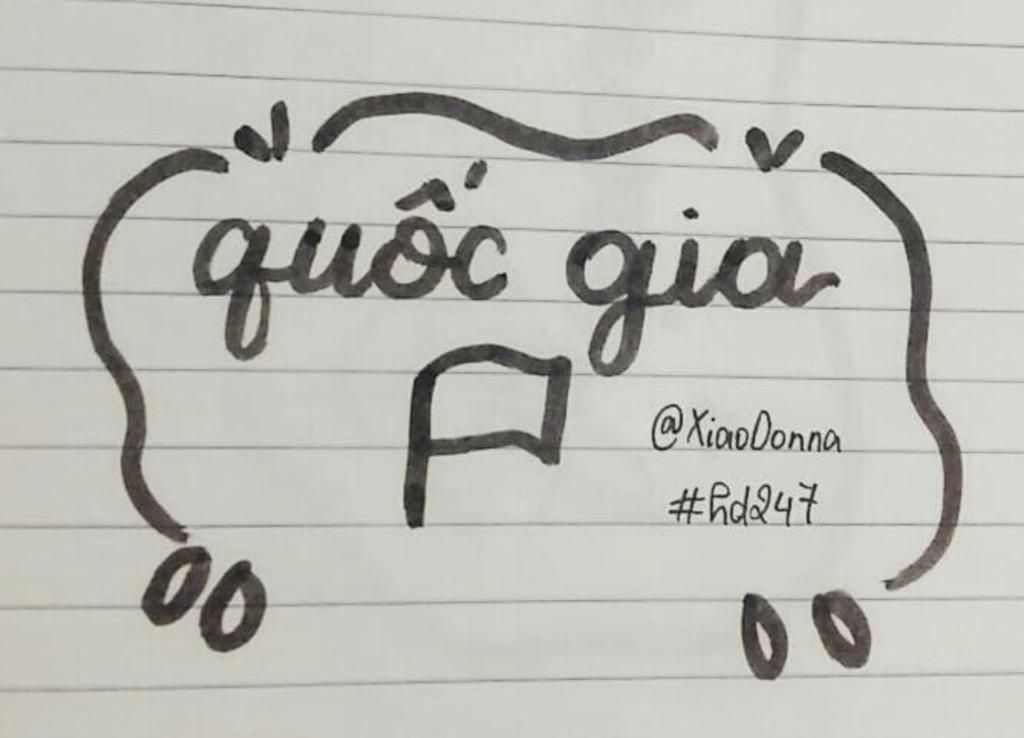 quốc gia
@XiaoDonna
#hd247